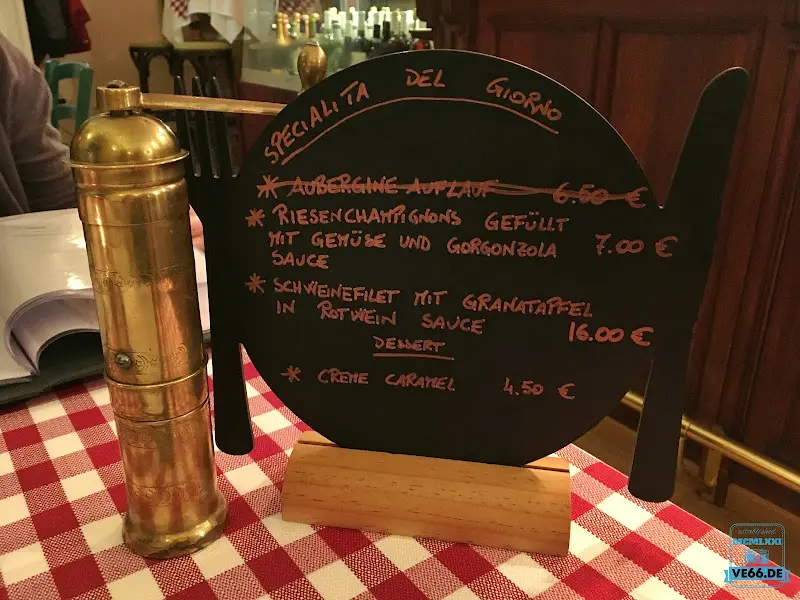 SPECIALITA DEL GIORNO
* AUBERGINE AUFLAUF 6.50 €
* RIESENCHAMPIGNONS GEFÜLLT
MIT GEMÜSE UND GORGONZOLA 7.00 €
SAUCE
* SCHWEINEFILET MIT GRANATAPFEL
IN ROTWEIN SAUCE 16.00 €
DESSERT
* CREME CARAMEL 4.50 €
established
MCMLXXI
VE66.DE